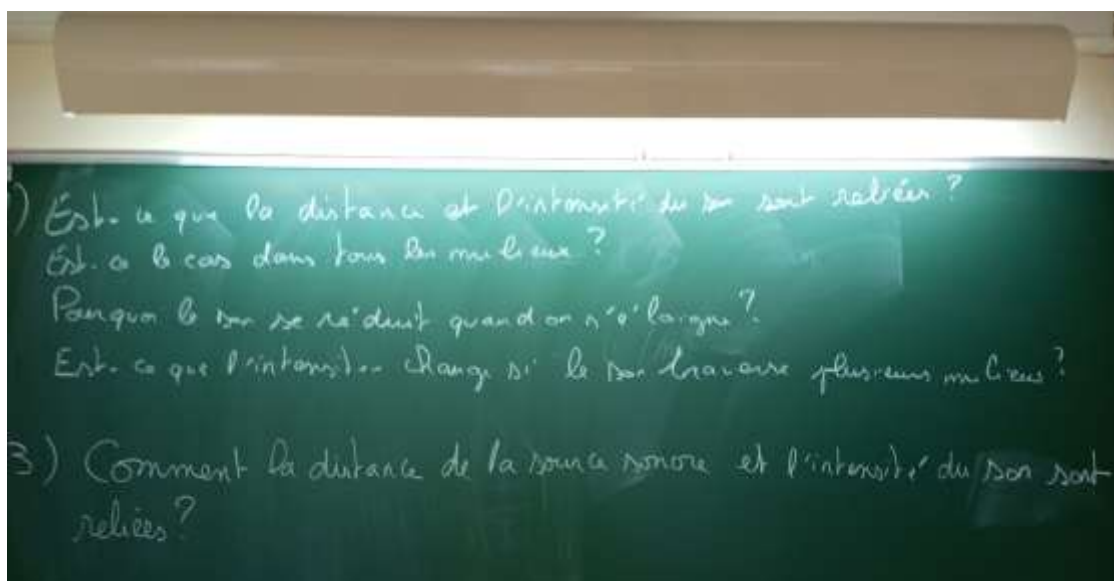 ) Est-ce que la distance et l'intensité du son sont reliées ?
Est-ce le cas dans tous les milieux ?
Pourquoi le son se réduit quand on s'éloigne ?
Est-ce que l'intensité change si le son traverse plusieurs milieux ?
3) Comment la distance de la source sonore et l'intensité du son sont
reliées ?